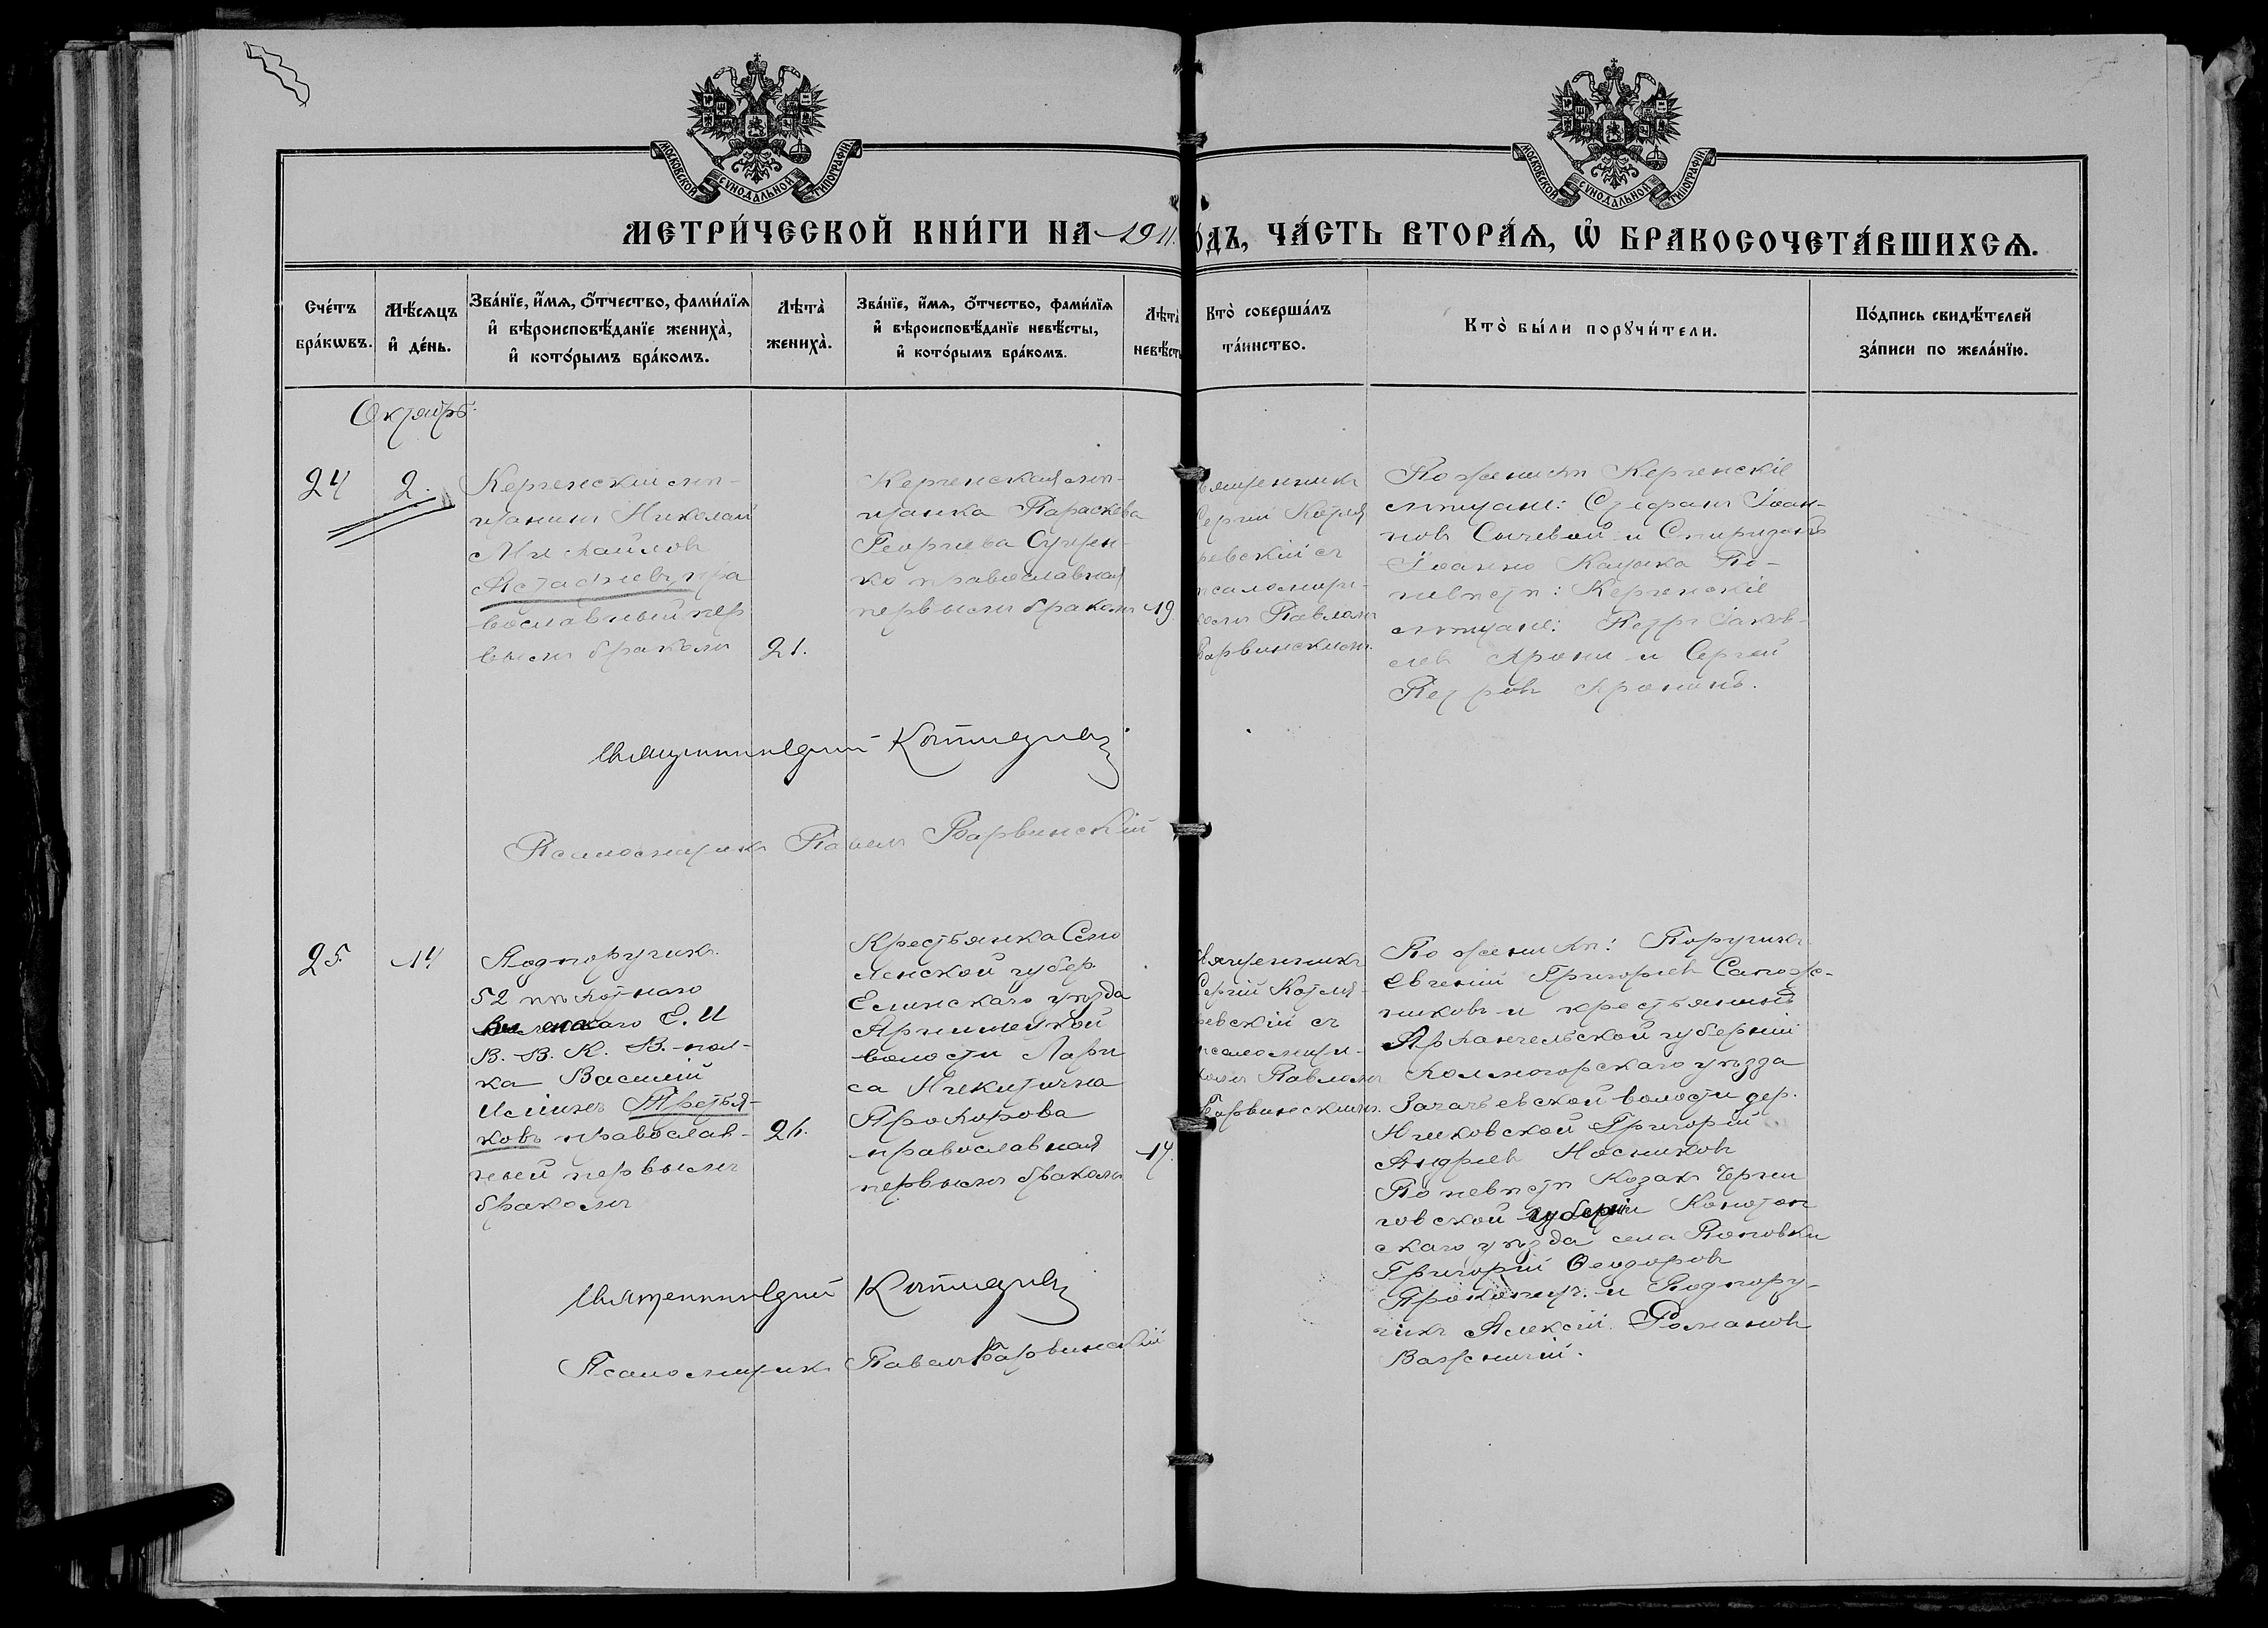 МОСКОВСКОЙ СУНОДАЛЬНОЙ ТИПОГРАФІИ
МОСКОВСКОЙ СУНОДАЛЬНОЙ ТИПОГРАФІИ
МЕТРИ́ЧЕСКОЙ КНИ́ГИ НА 1911
О́ДЪ, ЧА́СТЬ ВТОРА́Ѧ, Ѡ҆ БРАКОСОЧЕТА́ВШИХСѦ.
Сче́тъ
бра́кѡвъ.
Мѣ́сѧцъ
и҆ де́нь.
Зва́нїе, и҆́мѧ, ѻ҆́тчество, фами́лїѧ
и҆ вѣроисповѣ́данїе жениха̀,
и҆ кото́рымъ бра́комъ.
Лѣта̀
жениха̀.
Зва́нїе, и҆́мѧ, ѻ҆́тчество, фами́лїѧ
и҆ вѣроисповѣ́данїе невѣ́сты,
и҆ кото́рымъ бра́комъ.
Лѣта̀
невѣ́сты
Кто̀ соверша́лъ
та́инство.
Кто̀ бы́ли порꙋчи́тели.
По́дпись свидѣ́телей
за́писи по жела́нїю.
Октябрь
24
2.
Керченскій мѣ-
щанинъ Николай
Михайловъ
Астафьевъ пра
вославный пер
вымъ бракомъ
21.
Керченская мѣ-
щанка Параскева
Георгиева Сущен-
ко православная
первымъ бракомъ
19.
вященникъ
Сергій Котля
ревскій съ
псаломщи-
комъ Павломъ
Варвинскимъ.
По женихѣ Керченскіе
мѣщане: Стефанъ Іоан-
новъ Сычевой и Спиридонъ
Іоанно По-
невѣстѣ: Керченскіе
мѣщане: Петръ Іаков-
левъ и Сергей
Петровъ
Священник Сергій Котляревскій
Псаломщикъ Павелъ Варвинскій
25
14
Подпоручикъ
52 пѣхотнаго
Виленскаго Е. И
В. В. К. В. пол-
ка Василій
Третья-
ковъ православ-
ный первымъ
бракомъ
26.
Крестьянка Смо
ленской губер.
Елинскаго уѣзда
волости Лари
са Никитична
Прохорова
православная
первымъ бракомъ
17.
Священникъ
Сергій Котля-
ревскій съ
псаломщи-
комъ Павломъ
Варвинскимъ.
По женихѣ: Поручикъ
Евгеній Григорьевъ Сапож-
никовъ и крестьянинъ
Архангельской губерніи
Холмогорскаго уѣзда
Зачачьевской волости дер.
Григорій
Андреевъ Носниковъ
По невѣстѣ Козакъ Черни
говской губерніи Конотоп
скаго уѣзда села Поповки
Григорій Ѳеодоровъ
и Подпору-
чикъ Алексій Романовъ
Священник Сергій Котляревскій
Псаломщикъ Павелъ Варвинскій